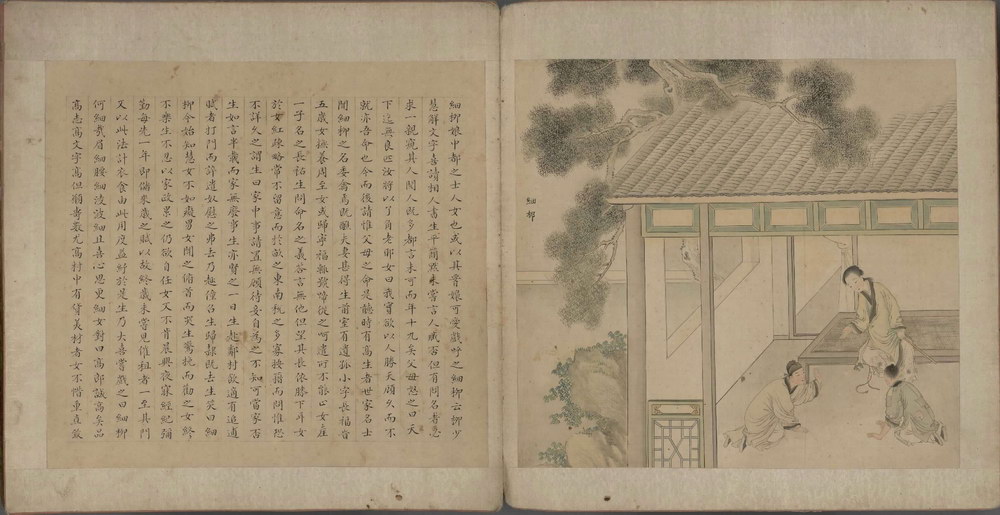 細柳
細柳娘中都之士人女也或以其腰嫖裊可愛戲呼之細柳云柳少
慧解文字喜讀相人書生平簡默未嘗言人臧否但有問名者必
求一親窺其人閱人既多都言未可而年十九矣父母怒之曰天
下迄無良匹汝將以丫角老耶女曰我實欲以人勝天顧久而不
就亦吾命也今而後請惟父母之命是聽時有高生者世家名士
聞細柳之名委禽焉既醮夫妻甚得生前室有遺孤小字長福甫
五歲女撫養周至女或歸寧福輒號啼從之呵遣所不能止女產
一子名之長怙生問命名之義答言無他但望其長依膝下耳女
於女紅疎略常不留意而於畝之東南稅之多寡按籍而問惟恐
不詳久之謂生曰家中事請置無顧待妾自為之不知可當家否
生如言半載而家無廢事生亦賢之一日生赴鄰村飲適有追逋
賦者打門而誶遣奴慰之弗去乃趣僮召生歸隸既去生笑曰細
柳今始知慧女不如癡男女聞之俯首而哭生驚挽而勸之女終
不樂生不忍以家政累之仍欲自任女又不肯晨興夜寐經紀彌
勤每先一年即儲來歲之賦以故終歲未嘗見催租者一至其門
又以此法計衣食由此用度益紓於是生乃大喜嘗戲之曰細柳
何細哉眉細腰細淩波細且喜心思更細女對曰高郎誠高矣品
高志高文字高但願壽數尤高村中有貨美材者女不惜重直致